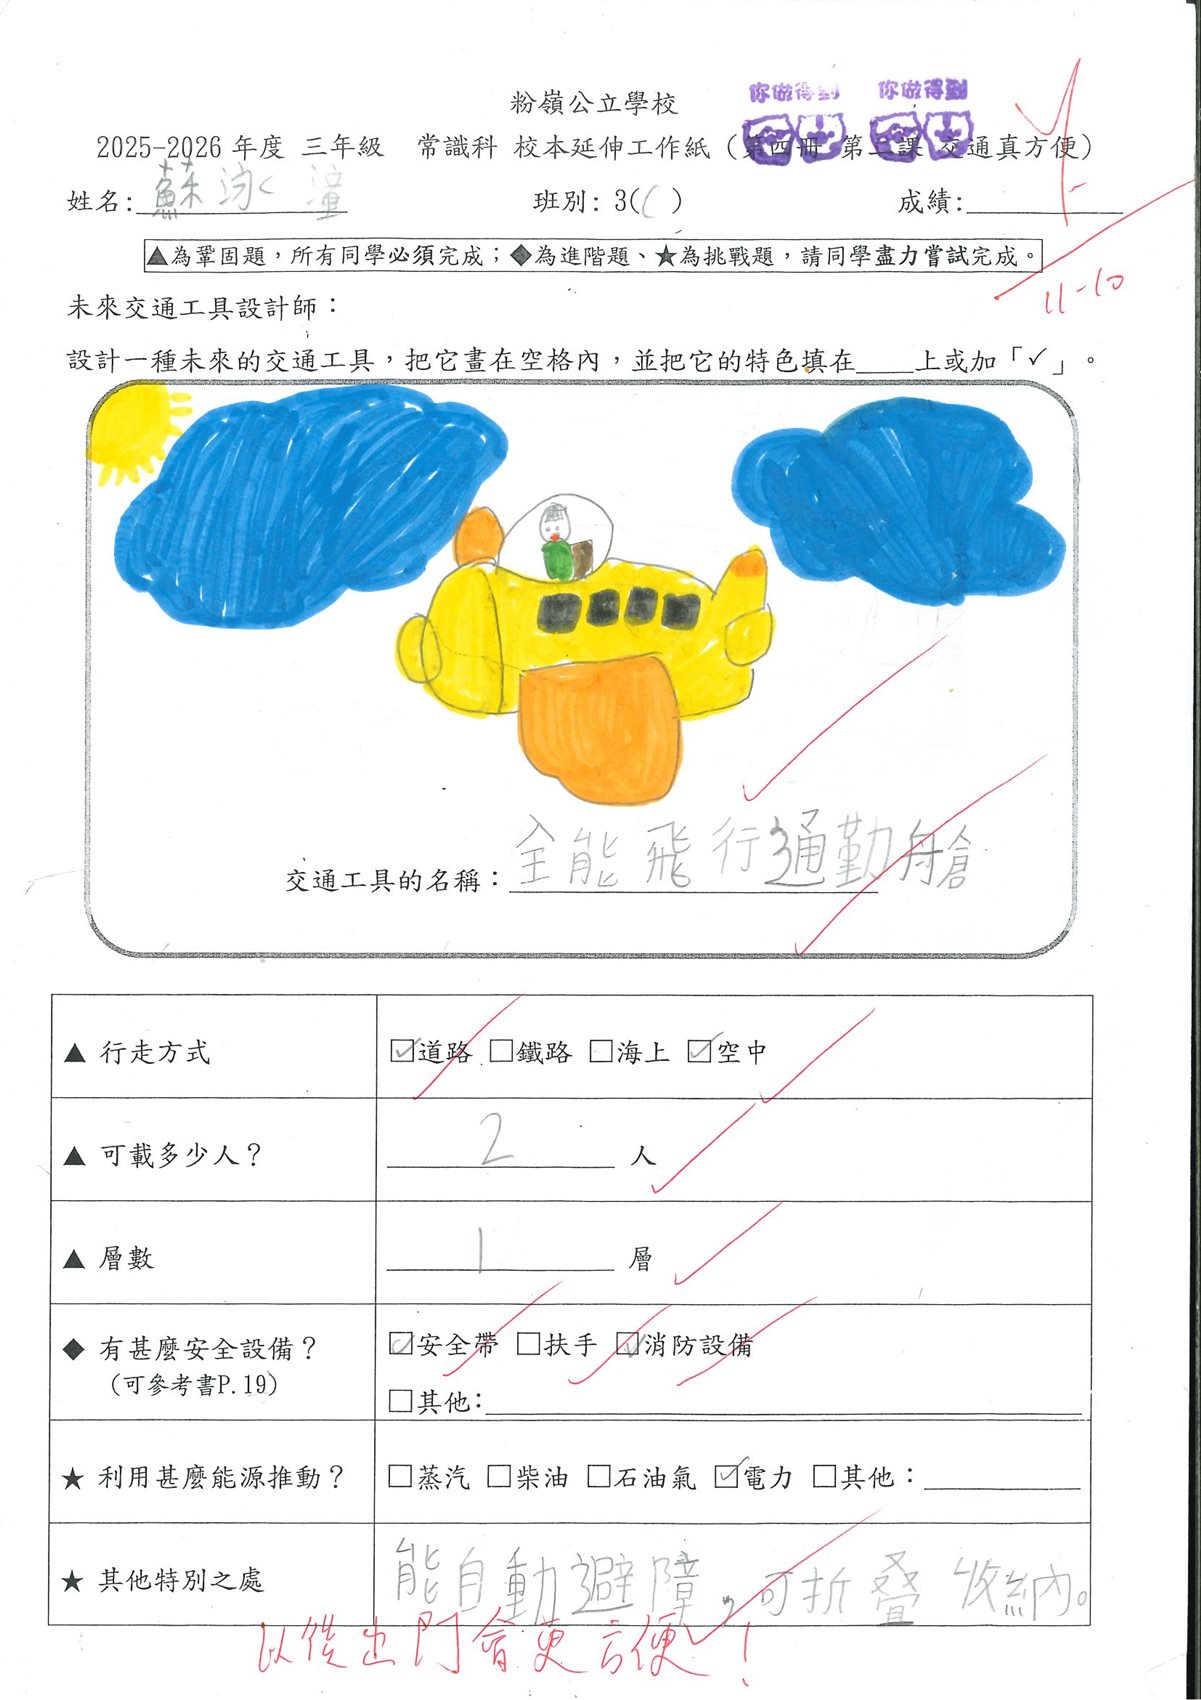 粉嶺公立學校
你做得到 你做得到
2025-2026 年度 三年級 常識科 校本延伸工作紙 (第四冊 第二課 交通真方便)
姓名: 蘇泳潼 班別: 3(C) 成績:
▲為鞏固題，所有同學必須完成；◆為進階題、★為挑戰題，請同學盡力嘗試完成。
11-10
未來交通工具設計師：
設計一種未來的交通工具，把它畫在空格內，並把它的特色填在____上或加「✓」。
交通工具的名稱：全能飛行通勤舱倉
▲ 行走方式 ☑道路 □鐵路 □海上 ☑空中
▲ 可載多少人？ 2 人
▲ 層數 1 層
◆ 有甚麼安全設備？ ☑安全帶 □扶手 ☑消防設備
(可參考書P.19) □其他:
★ 利用甚麼能源推動？ □蒸汽 □柴油 □石油氣 ☑電力 □其他：
★ 其他特別之處 能自動避障，可折叠收納。
以後出門會更方便！